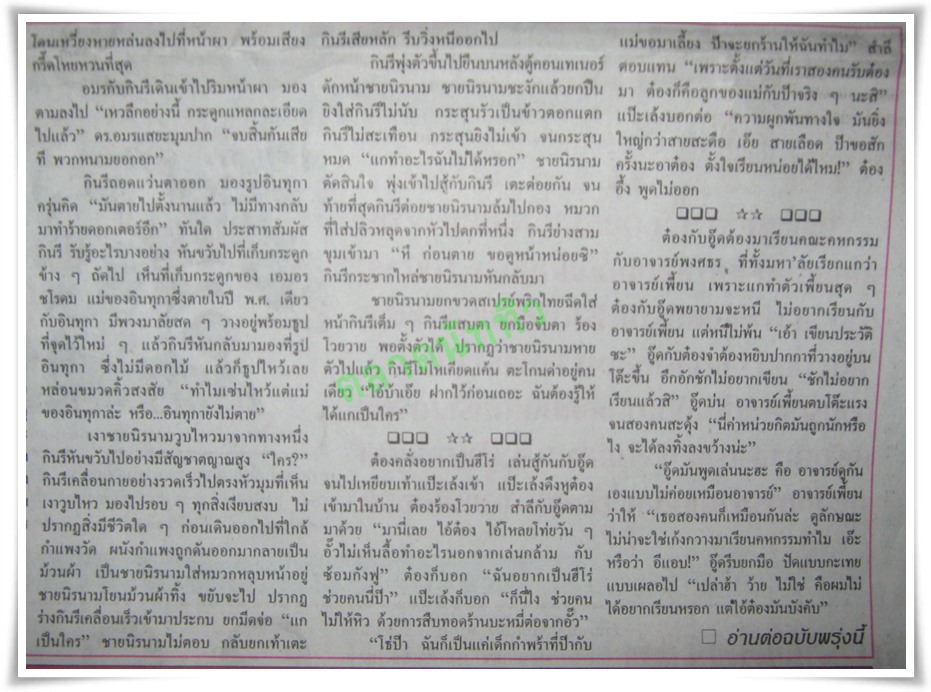 โดนเหวี่ยงหายหล่นลงไปที่หน้าผา พร้อมเสียง
กรี๊ดโหยหวนที่สุด
อมรกับกินรีเดินเข้าไปริมหน้าผา มอง
ตามลงไป “เหวลึกอย่างนี้ กระดูกแหลกละเอียด
ไปแล้ว” ดร.อมรแสยะมุมปาก “จบสิ้นกันเสีย
ที พวกหนามยอกอก”
กินรีถอดแว่นตาออก มองรูปอินทุกา
ครุ่นคิด “มันตายไปตั้งนานแล้ว ไม่มีทางกลับ
มาทำร้ายดอกเตอร์อีก” ทันใด ประสาทสัมผัส
กินรี รับรู้อะไรบางอย่าง หันขวับไปที่เก็บกระดูก
ข้าง ๆ ถัดไป เห็นที่เก็บกระดูกของ เอมอร
ชโรดม แม่ของอินทุกาซึ่งตายในปี พ.ศ. เดียว
กับอินทุกา มีพวงมาลัยสด ๆ วางอยู่พร้อมธูป
ที่จุดไว้ใหม่ ๆ แล้วกินรีหันกลับมามองที่รูป
อินทุกา ซึ่งไม่มีดอกไม้ แล้วก็ธูปไหว้เลย
หล่อนขมวดคิ้วสงสัย “ทำไมเซ่นไหว้แต่แม่
ของอินทุกาล่ะ หรือ...อินทุกายังไม่ตาย”
เงาชายนิรนามวูบไหวมาจากทางหนึ่ง
กินรีหันขวับไปอย่างมีสัญชาตญาณสูง “ใคร?”
กินรีเคลื่อนกายอย่างรวดเร็วไปตรงหัวมุมที่เห็น
เงาวูบไหว มองไปรอบ ๆ ทุกสิ่งเงียบสงบ ไม่
ปรากฏสิ่งมีชีวิตใด ๆ ก่อนเดินออกไปที่ใกล้
กำแพงวัด ผนังกำแพงถูกดันออกมากลายเป็น
ม้วนผ้า เป็นชายนิรนามใส่หมวกหลุบหน้าอยู่
ชายนิรนามโยนม้วนผ้าทิ้ง ขยับจะไป ปรากฏ
ร่างกินรีเคลื่อนเร็วเข้ามาประกบ ยกมีดจ่อ “แก
เป็นใคร” ชายนิรนามไม่ตอบ กลับยกเท้าเตะ
กินรีเสียหลัก รีบวิ่งหนีออกไป
กินรีพุ่งตัวขึ้นไปยืนบนหลังตู้คอนเทเนอร์
ดักหน้าชายนิรนาม ชายนิรนามชะงักแล้วยกปืน
ยิงใส่กินรีไม่นับ กระสุนรัวเป็นข้าวตอกแตก
กินรีไม่สะเทือน กระสุนยิงไม่เข้า จนกระสุน
หมด “แกทำอะไรฉันไม่ได้หรอก” ชายนิรนาม
ตัดสินใจ พุ่งเข้าไปสู้กับกินรี เตะต่อยกัน จน
ท้ายที่สุดกินรีต่อยชายนิรนามล้มไปกอง หมวก
ที่ใส่ปลิวหลุดจากหัวไปตกที่หนึ่ง กินรีย่างสาม
ขุมเข้ามา “หึ ก่อนตาย ขอดูหน้าหน่อยซิ”
กินรีกระชากไหล่ชายนิรนามหันกลับมา
ชายนิรนามยกขวดสเปรย์พริกไทยฉีดใส่
หน้ากินรีเต็ม ๆ กินรีแสบตา ยกมือจับตา ร้อง
โวยวาย พอตั้งตัวได้ ปรากฏว่าชายนิรนามหาย
ตัวไปแล้ว กินรีโมโหเคียดแค้น ตะโกนด่าอยู่คน
เดียว “ไอ้บ้าเอ๊ย ฝากไว้ก่อนเถอะ ฉันต้องรู้ให้
ได้แกเป็นใคร”
❑❑❑ ☆☆ ❑❑❑
ต๋องคลั่งอยากเป็นฮีโร่ เล่นสู้กันกับอู๊ด
จนไปเหยียบเท้าแป๊ะเล้งเข้า แป๊ะเล้งดึงหูต๋อง
เข้ามาในบ้าน ต๋องร้องโวยวาย สำลีกับอู๊ดตาม
มาด้วย “มานี่เลย ไอ้ต๋อง ไอ้โหลยโท่ยวัน ๆ
อั๊วไม่เห็นลื้อทำอะไรนอกจากเล่นกล้าม กับ
ซ้อมกังฟู” ต๋องก็บอก “ฉันอยากเป็นฮีโร่
ช่วยคนนี่ป๊า” แป๊ะเล้งก็บอก “ก็นี่ไง ช่วยคน
ไม่ให้หิว ด้วยการสืบทอดร้านบะหมี่ต่อจากอั๊ว”
“โธ่ป๊า ฉันก็เป็นแค่เด็กกำพร้าที่ป๊ากับ
แม่ขอมาเลี้ยง ป๊าจะยกร้านให้ฉันทำไม” สำลี
ตอบแทน “เพราะตั้งแต่วันที่เราสองคนรับต๋อง
มา ต๋องก็คือลูกของแม่กับป๊าจริง ๆ นะสิ”
แป๊ะเล้งบอกต่อ “ความผูกพันทางใจ มันยิ่ง
ใหญ่กว่าสายสะดือ เอ๊ย สายเลือด ป๊าขอสัก
ครั้งนะอาต๋อง ตั้งใจเรียนหน่อยได้ไหม!” ต๋อง
อึ้ง พูดไม่ออก
❑❑❑ ☆☆ ❑❑❑
ต๋องกับอู๊ดต้องมาเรียนคณะคหกรรม
กับอาจารย์พงศธร ที่ทั้งมหา'ลัยเรียกแกว่า
อาจารย์เพี้ยน เพราะแกทำตัวเพี้ยนสุด ๆ
ต๋องกับอู๊ดพยายามจะหนี ไม่อยากเรียนกับ
อาจารย์เพี้ยน แต่หนีไม่พ้น “เอ้า เขียนประวัติ
ซะ” อู๊ดกับต๋องจำต้องหยิบปากกาที่วางอยู่บน
โต๊ะขึ้น อึกอักชักไม่อยากเขียน “ชักไม่อยาก
เรียนแล้วสิ” อู๊ดบ่น อาจารย์เพี้ยนตบโต๊ะแรง
จนสองคนสะดุ้ง “นี่ค่าหน่วยกิตมันถูกนักหรือ
ไง จะได้ลงทิ้งลงขว้างน่ะ”
“อู๊ดมันพูดเล่นนะฮะ คือ อาจารย์ดูกัน
เองแบบไม่ค่อยเหมือนอาจารย์” อาจารย์เพี้ยน
ว่าให้ “เธอสองคนก็เหมือนกันล่ะ ดูลักษณะ
ไม่น่าจะใช่เก้งกวางมาเรียนคหกรรมทำไม เอ๊ะ
หรือว่า อีแอบ!” อู๊ดรีบยกมือ ปัดแบบกะเทย
แบบเผลอไป “เปล่าฮ้า ว้าย ไม่ใช่ คือผมไม่
ได้อยากเรียนหรอก แต่ไอ้ต๋องมันบังคับ”
❑ อ่านต่อฉบับพรุ่งนี้